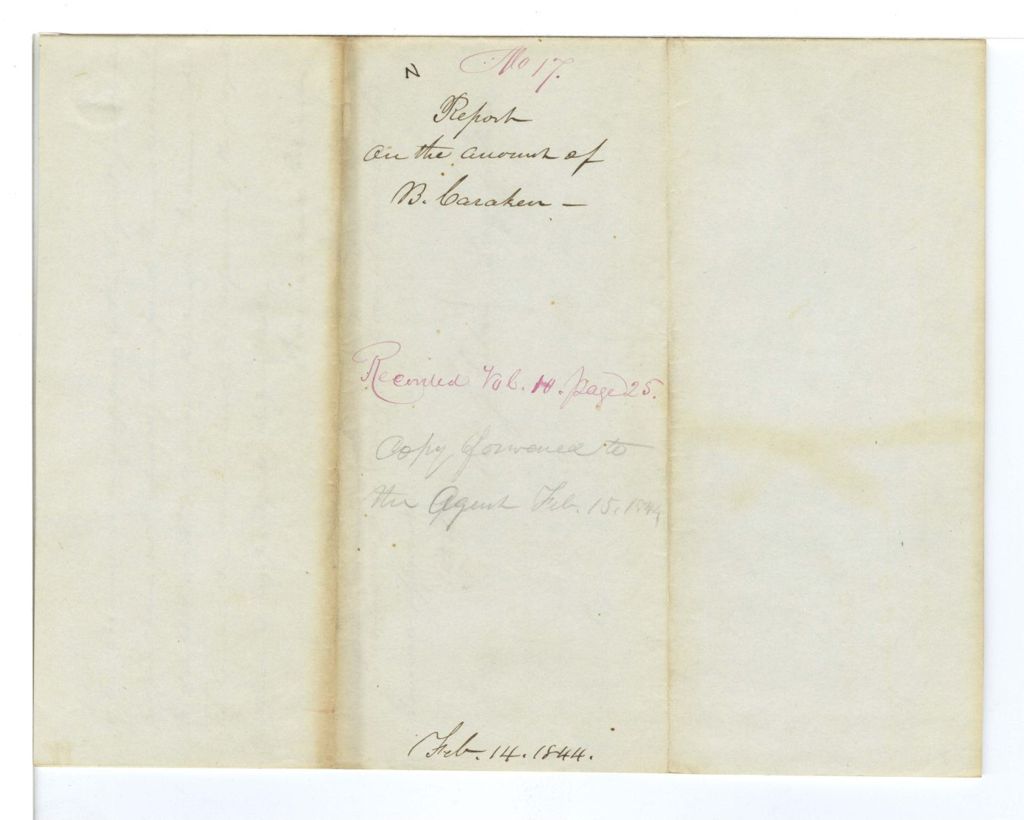 N
No 17.
Report
On the account of
B. Caraken –
Recorded Vol. 10. page 25.
Copy forwared to
the Agent Feb. 15. 1844
Feb. 14. 1844.